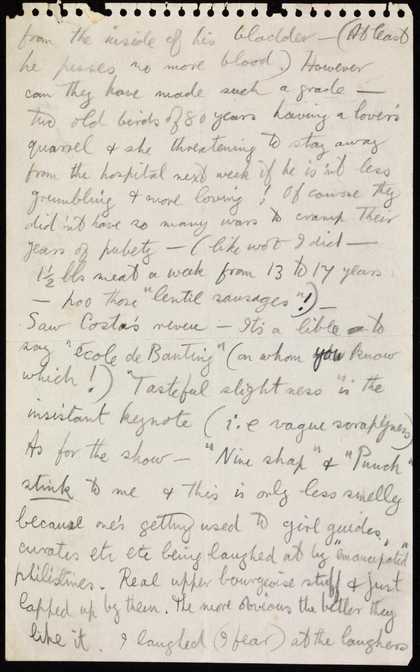 from the inside of his bladder – (At least
he pisses no more blood.) However
can they have made such a grade –
two old birds of 80 years having a lover's
quarrel & she threatening to stay away
from the hospital next week if he isn't less
grumbling & more loving! Of course they
did'nt have so many wars to cramp their
years of puberty – (like wot I did –
1½ lbs meat a week from 13 to 17 years
– poo those "lentil sausages"!) –
Saw Costa's revue – Its a lible to
say "école de Banting" (on whom you know
which!) "Tasteful slightness" is the
insistant keynote (i.e vague soraptyness)
As for the show – "Nine shap" & "Punch"
stink to me & this is only less smelly
because one's getting used to girl guides,
curates etc etc being laughed at by "emancipated"
philistines. Real upper bourgeoise stuff & just
lapped up by them. The more obvious the better they
like it. I laughed (I fear) at the laughers